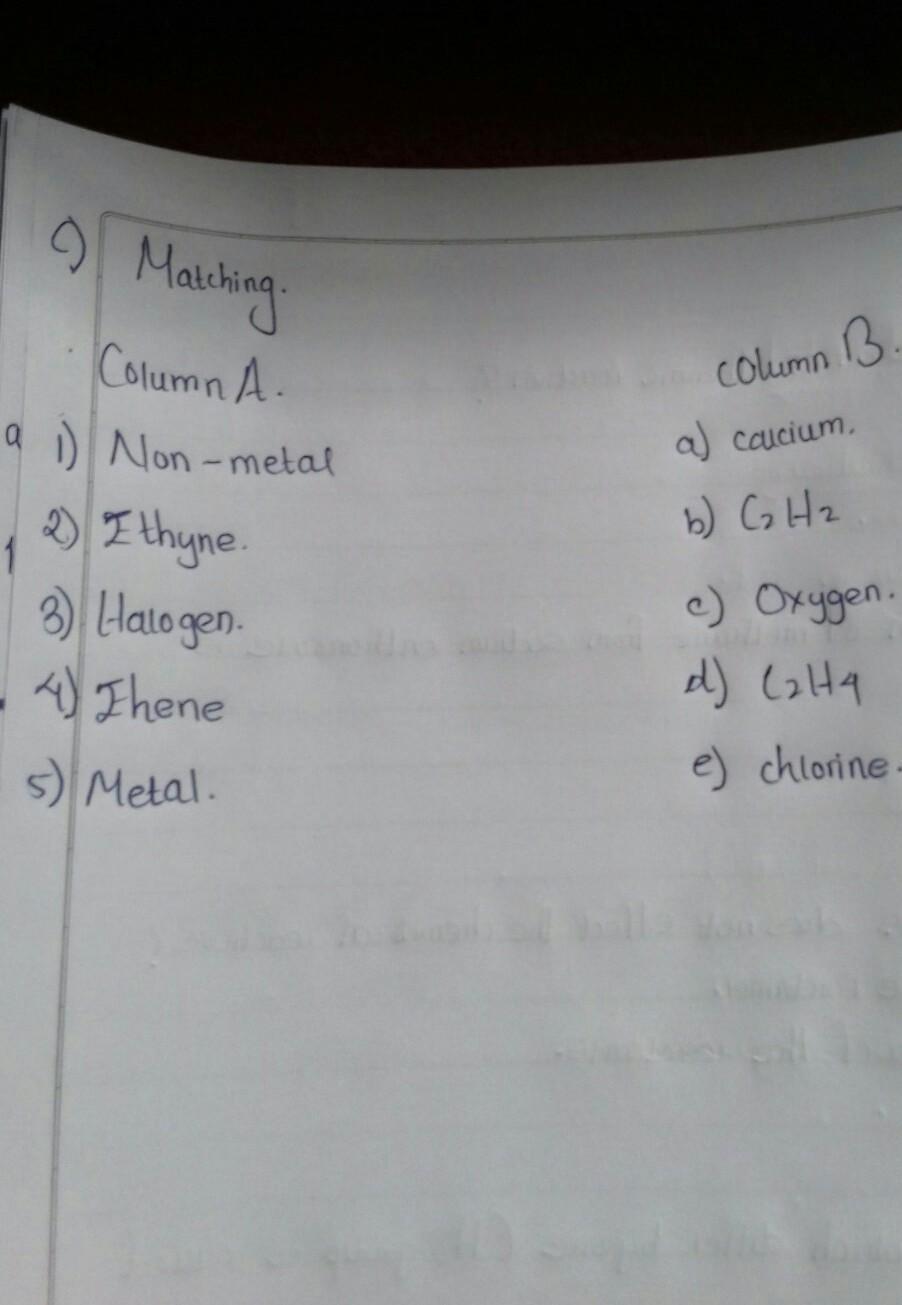 c) Matching.
Column A. column B.
1) Non-metal a) calcium.
2) Ethyne. b) C2H2
3) Halogen. c) Oxygen.
4) Ehene d) C2H4
5) Metal. e) chlorine.